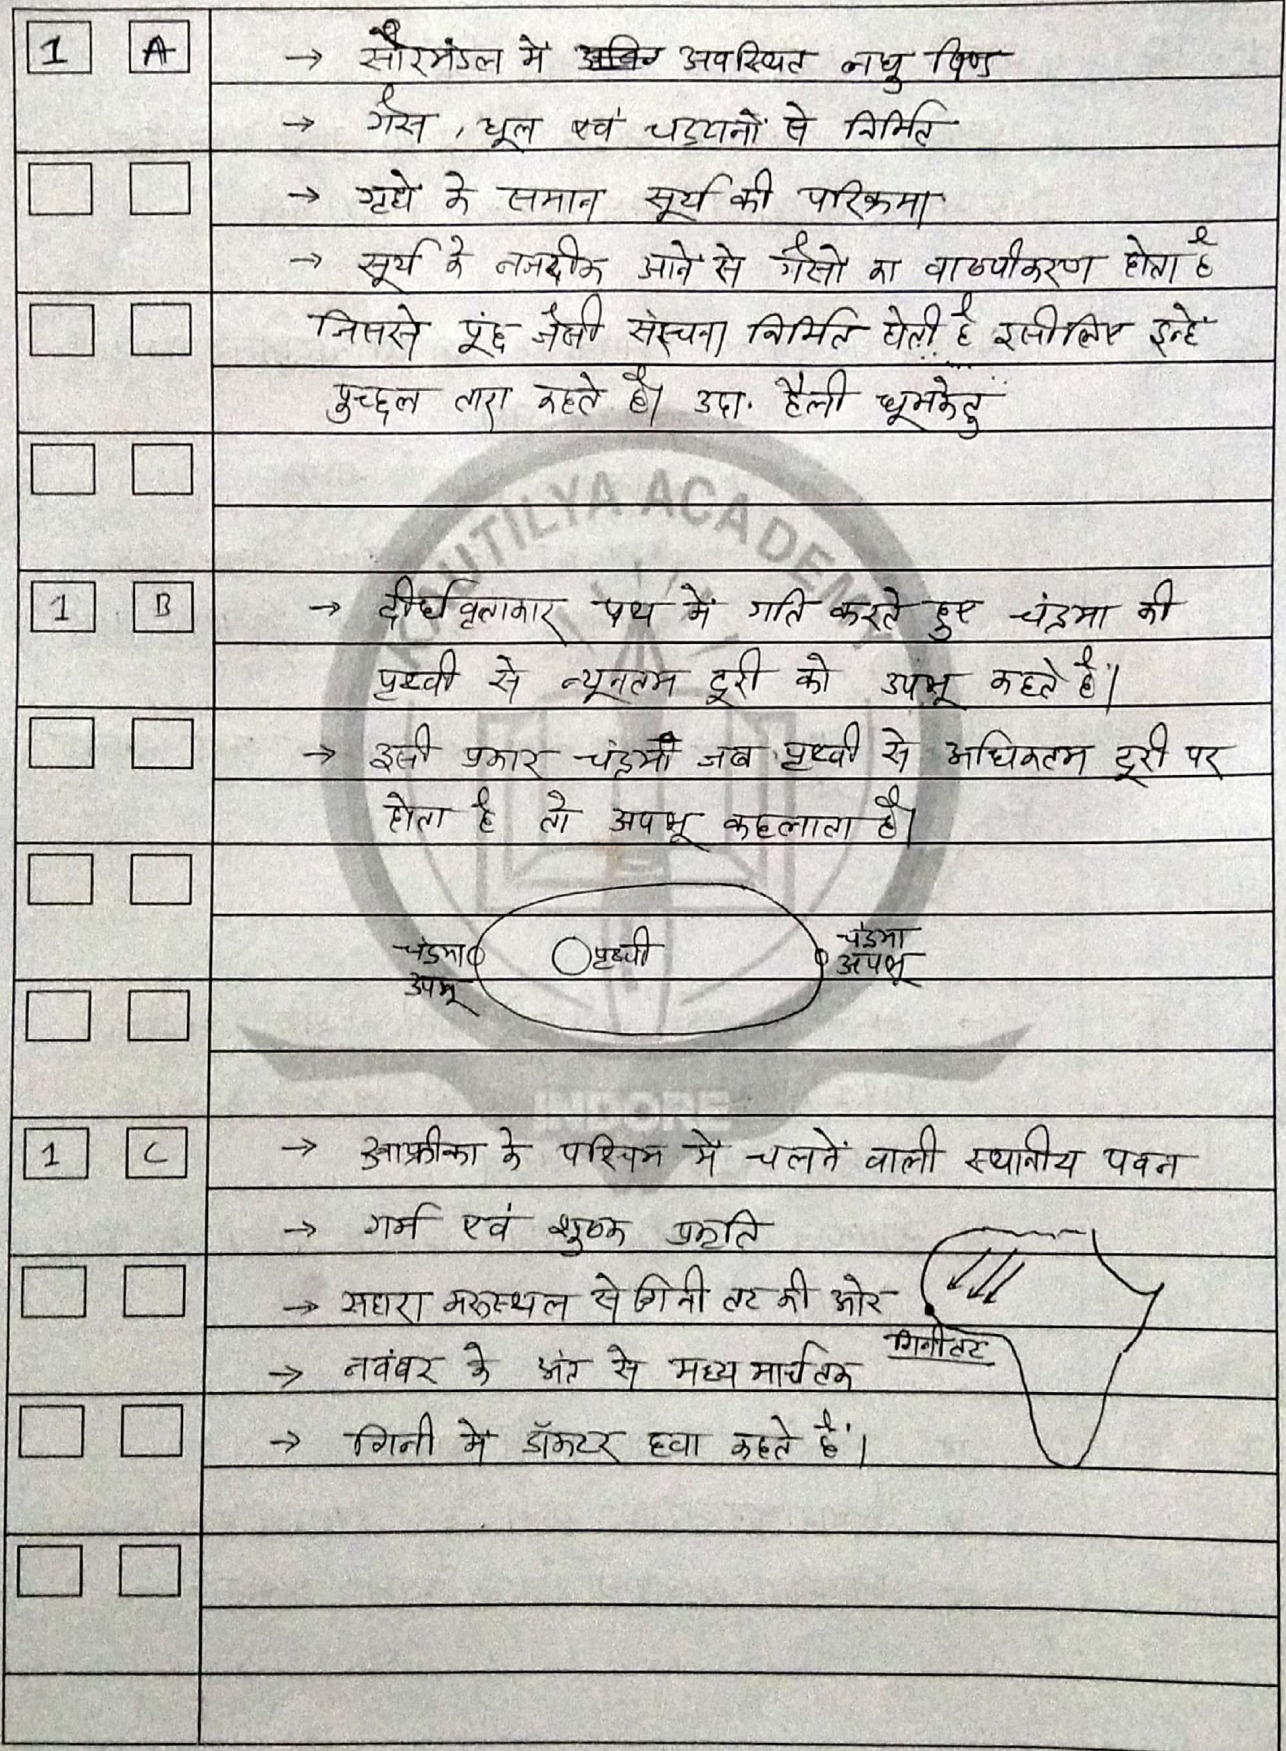 1 A → सौरमंडल में अवस्थित लघु पिण्ड
→ गैस, धूल एवं चट्टानों से निर्मित
→ ग्रहों के समान सूर्य की परिक्रमा
→ सूर्य के नजदीक आने से गैसों का वाष्पीकरण होता है
जिससे पूंछ जैसी संरचना निर्मित होती है इसीलिए इन्हें
पुच्छल तारा कहते है। उदा. हैली धूमकेतु
KAUTILYA ACADEMY
1 B → दीर्घवृताकार पथ में गति करते हुए चंद्रमा की
पृथ्वी से न्यूनतम दूरी को उपभू कहते हैं।
→ इसी प्रकार चंद्रमा जब पृथ्वी से अधिकतम दूरी पर
होता है तो अपभू कहलाता है।
चंद्रमा पृथ्वी चंद्रमा
उपभू अपभू
INDORE
1 C → अफ्रीका के पश्चिम में चलने वाली स्थानीय पवन
→ गर्म एवं शुष्क प्रकृति
→ सहारा मरूस्थल से गिनी तट की ओर
गिनी तट
→ नवंबर के अंत से मध्य मार्च तक
→ गिनी में डॉक्टर हवा कहते हैं।